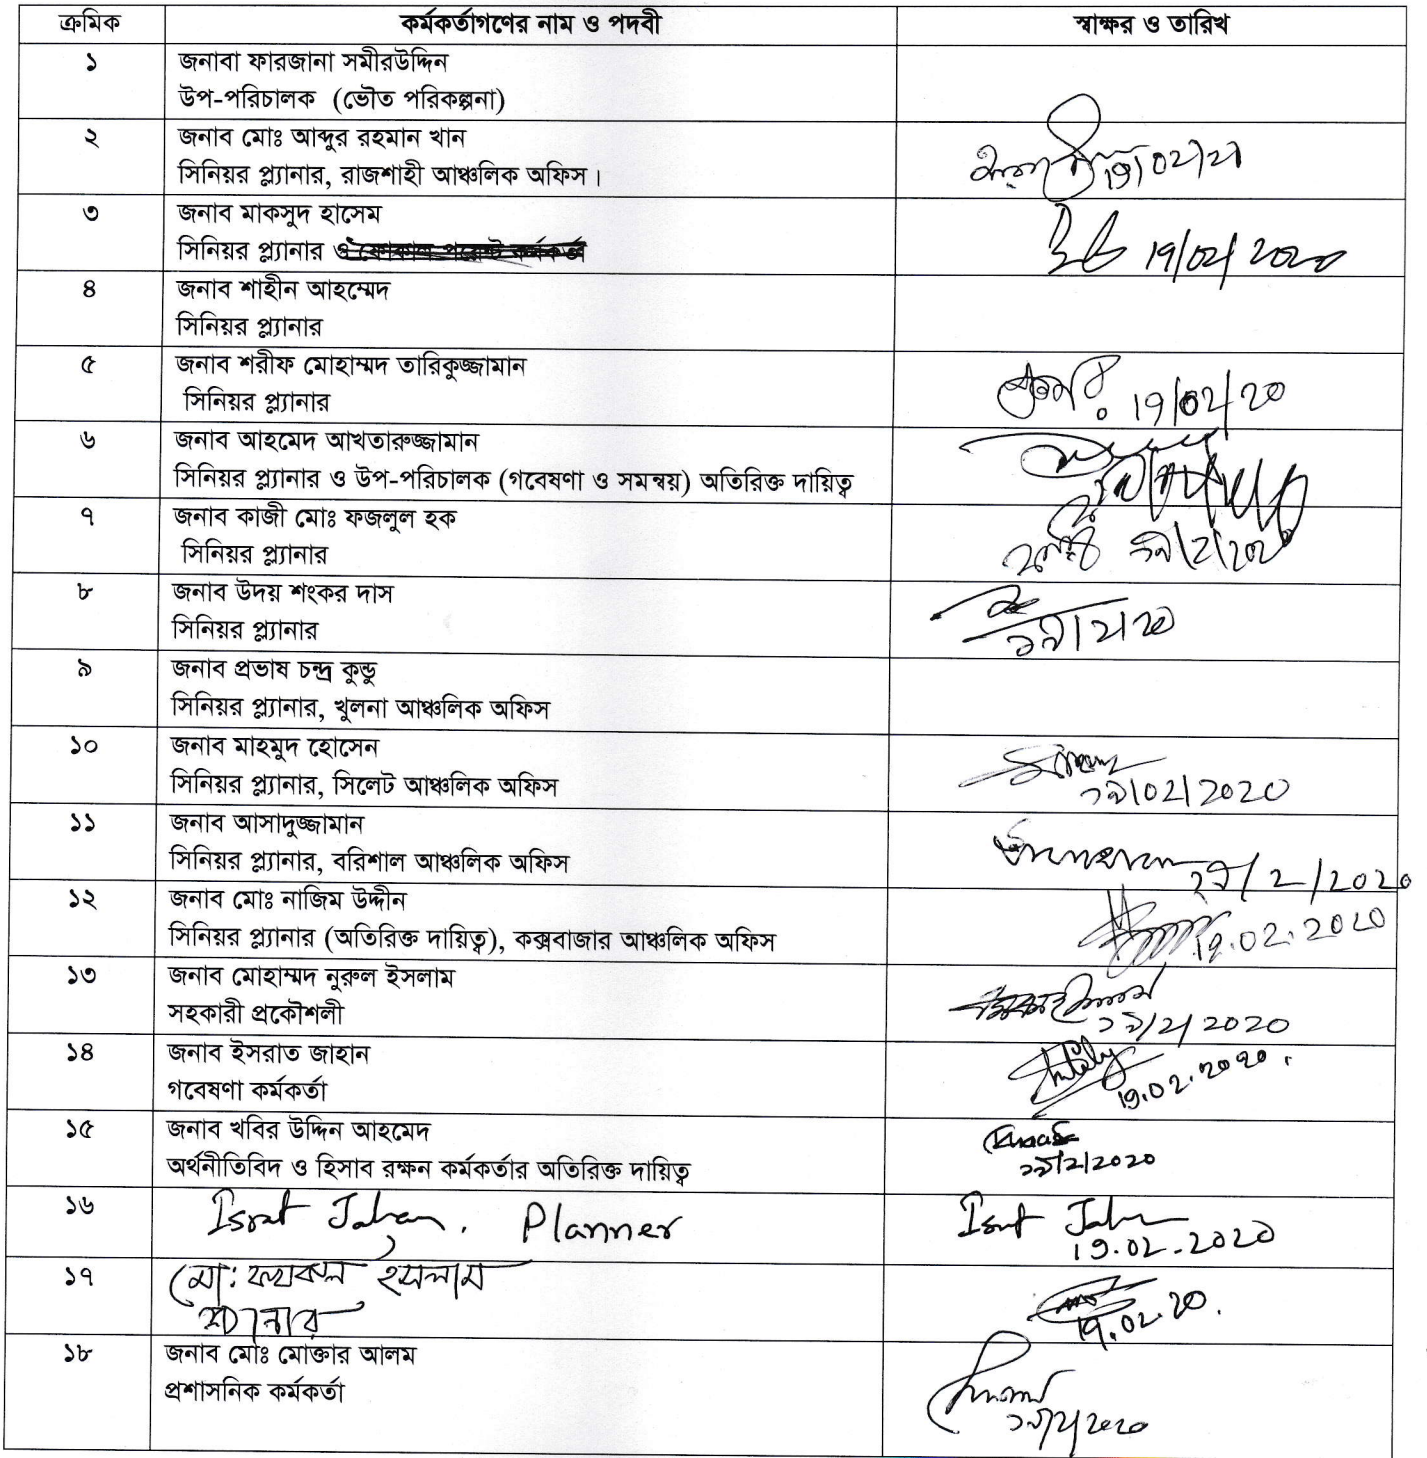 ক্রমিক কর্মকর্তাগণের নাম ও পদবী স্বাক্ষর ও তারিখ
১ জনাবা ফারজানা সমীরউদ্দিন
উপ-পরিচালক (ভৌত পরিকল্পনা)
২ জনাব মোঃ আব্দুর রহমান খান
সিনিয়র প্ল্যানার, রাজশাহী আঞ্চলিক অফিস। 19/02/২১
৩ জনাব মাকসুদ হাসেম
সিনিয়র প্ল্যানার ও ফোকাল পয়েন্ট কর্মকর্তা 19/02/2020
৪ জনাব শাহীন আহম্মেদ
সিনিয়র প্ল্যানার
৫ জনাব শরীফ মোহাম্মদ তারিকুজ্জামান
সিনিয়র প্ল্যানার 19/02/20
৬ জনাব আহমেদ আখতারুজ্জামান
সিনিয়র প্ল্যানার ও উপ-পরিচালক (গবেষণা ও সমন্বয়) অতিরিক্ত দায়িত্ব
৭ জনাব কাজী মোঃ ফজলুল হক
সিনিয়র প্ল্যানার ১৯/2/২০২০
৮ জনাব উদয় শংকর দাস
সিনিয়র প্ল্যানার ১৯/২/২০
৯ জনাব প্রভাষ চন্দ্র কুন্ডু
সিনিয়র প্ল্যানার, খুলনা আঞ্চলিক অফিস
১০ জনাব মাহমুদ হোসেন
সিনিয়র প্ল্যানার, সিলেট আঞ্চলিক অফিস ১৯/02/2020
১১ জনাব আসাদুজ্জামান
সিনিয়র প্ল্যানার, বরিশাল আঞ্চলিক অফিস ১৯/2/2020
১২ জনাব মোঃ নাজিম উদ্দীন
সিনিয়র প্ল্যানার (অতিরিক্ত দায়িত্ব), কক্সবাজার আঞ্চলিক অফিস 19.02.2020
১৩ জনাব মোহাম্মদ নুরুল ইসলাম
সহকারী প্রকৌশলী ১৯/2/2020
১৪ জনাব ইসরাত জাহান
গবেষণা কর্মকর্তা 19.02.2020.
১৫ জনাব খবির উদ্দিন আহমেদ
অর্থনীতিবিদ ও হিসাব রক্ষন কর্মকর্তার অতিরিক্ত দায়িত্ব ১৯/2/2020
১৬ Israt Jahan, Planner Israt Jahan
19.02.2020
১৭ মো: ইসলাম
প্ল্যানার 19.02.20.
১৮ জনাব মোঃ মোক্তার আলম
প্রশাসনিক কর্মকর্তা ১৯/২/২০২০